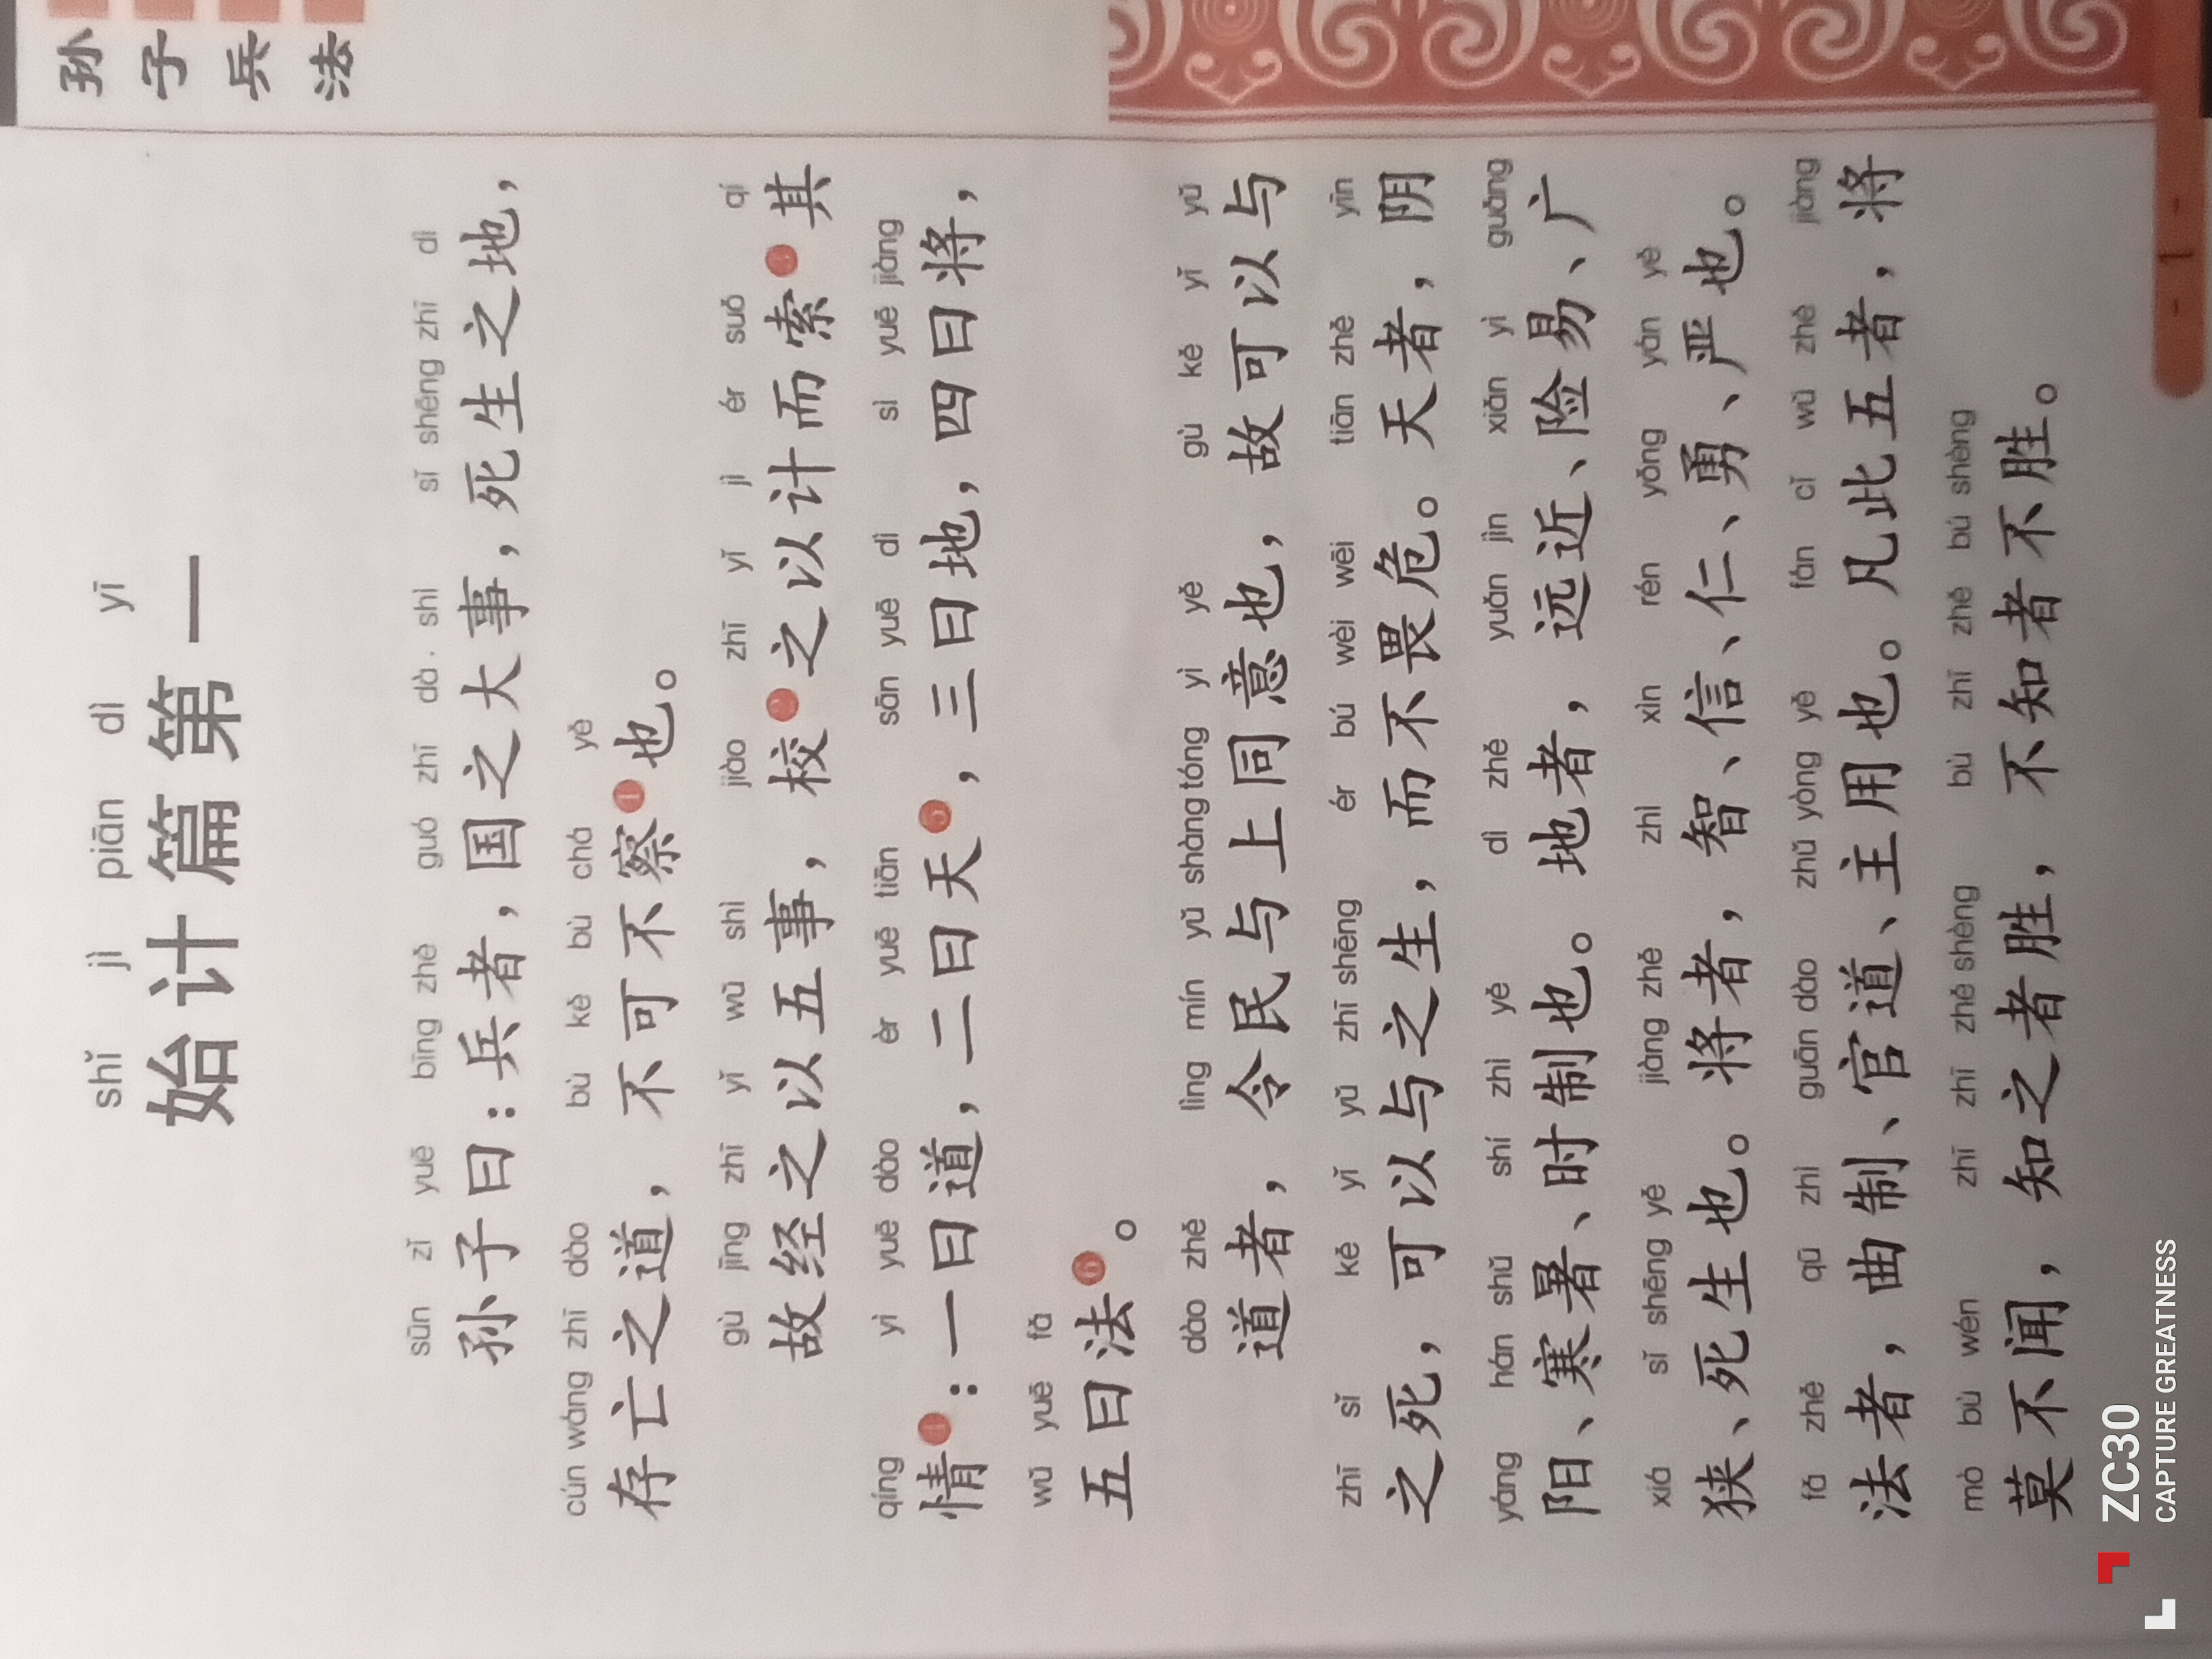 孙子兵法
shǐ jì piān dì yī
始计篇第一
sūn zǐ yuē bīng zhě guó zhī dà shì sǐ shēng zhī dì
孙子曰：兵者，国之大事，死生之地，
cún wáng zhī dào bù kě bù chá yě
存亡之道，不可不察❶也。
gù jīng zhī yǐ wǔ shì jiào zhī yǐ jì ér suǒ qí
故经之以五事，校❷之以计而索❸其
qíng yì yuē dào èr yuē tiān sān yuē dì sì yuē jiàng
情❹：一曰道，二曰天❺，三曰地，四曰将，
wǔ yuē fǎ
五曰法❻。
dào zhě lìng mín yǔ shàng tóng yì yě gù kě yǐ yǔ
道者，令民与上同意也，故可以与
zhī sǐ kě yǐ yǔ zhī shēng ér bú wèi wēi tiān zhě yīn
之死，可以与之生，而不畏危。天者，阴
yáng hán shǔ shí zhì yě dì zhě yuǎn jìn xiǎn yì guǎng
阳、寒暑、时制也。地者，远近、险易、广
xiá sǐ shēng yě jiàng zhě zhì xìn rén yǒng yán yě
狭、死生也。将者，智、信、仁、勇、严也。
fǎ zhě qū zhì guān dào zhǔ yòng yě fán cǐ wǔ zhě jiàng
法者，曲制、官道、主用也。凡此五者，将
mò bù wén zhī zhī zhě shèng bù zhī zhě bú shèng
莫不闻，知之者胜，不知者不胜。
- 1 -
ZC30
CAPTURE GREATNESS